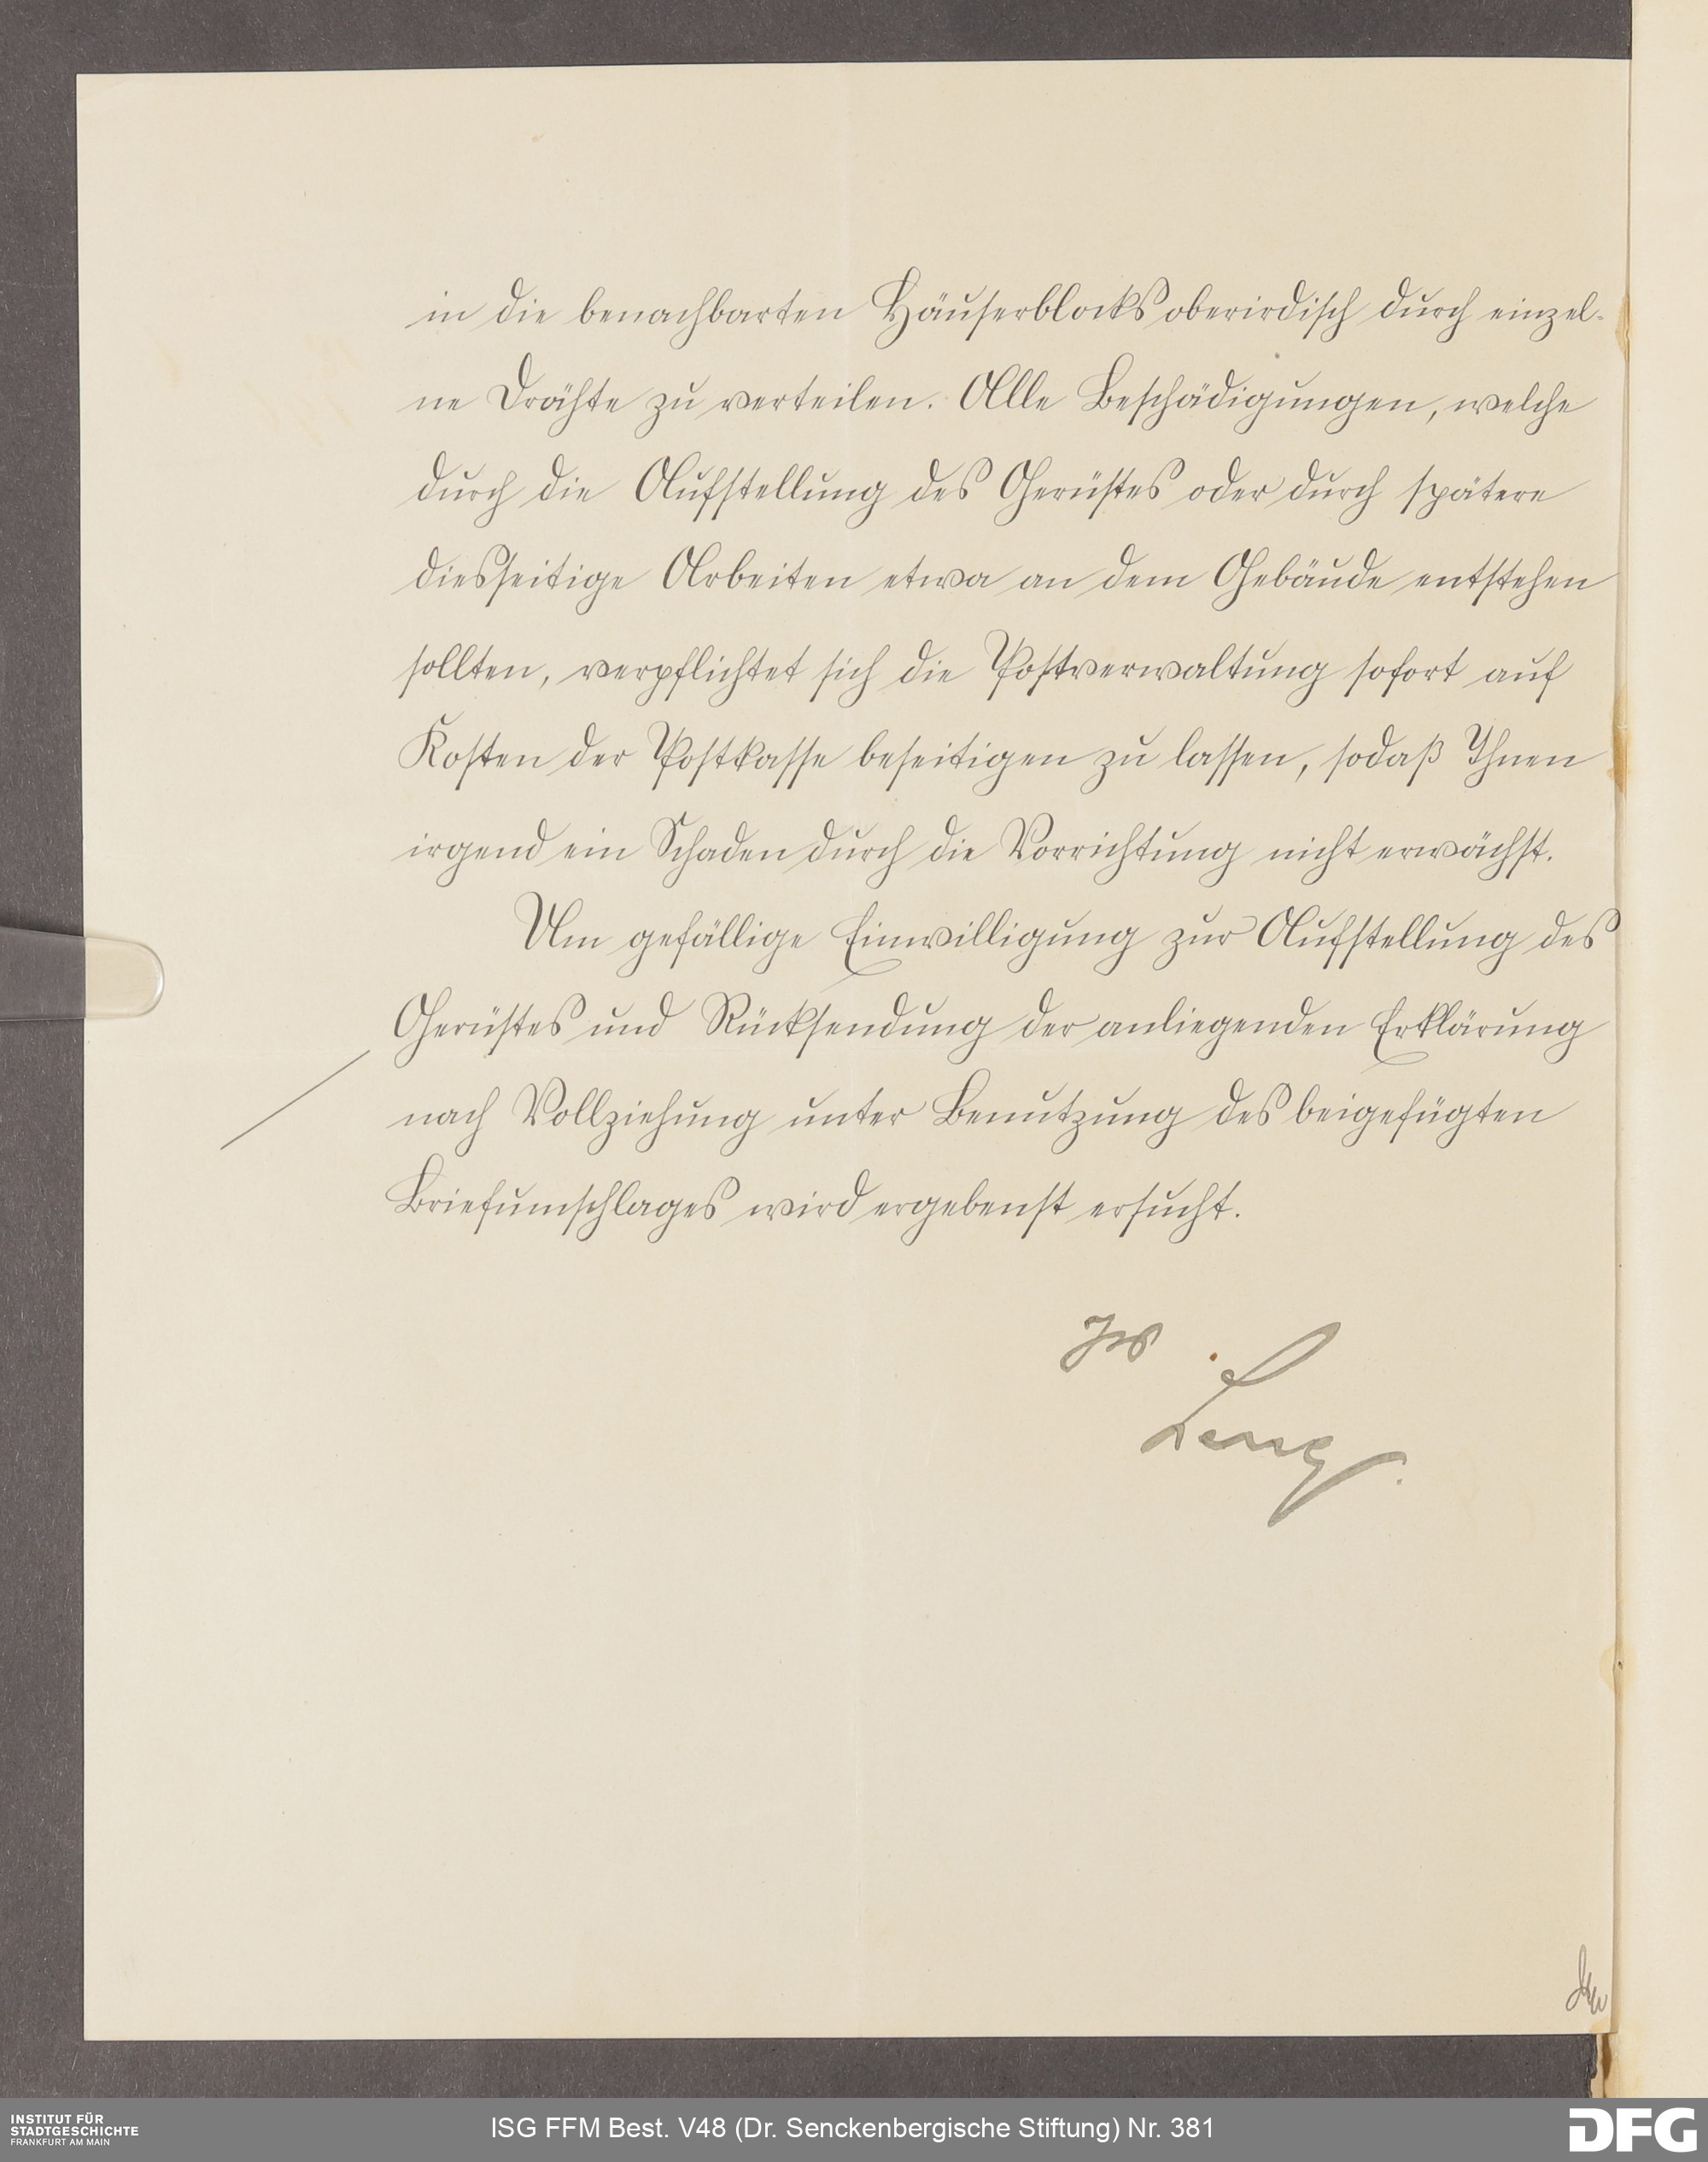 in die benachbarten Häuserblocks oberirdisch durch einzel-
ne Drähte zu verteilen. Alle Beschädigungen, welche
durch die Aufstellung des Gerüstes oder durch spätere
diesseitige Arbeiten etwa an dem Gebäude entstehen
sollten, verpflichtet sich die Postverwaltung sofort auf
Kosten der Postkasse beseitigen zu lassen, sodaß Ihnen
irgend ein Schaden durch die Vorrichtung nicht erwächst.
Um gefällige Einwilligung zur Aufstellung des
Gerüstes und Rücksendung der anliegenden Erklärung
nach Vollziehung unter Benutzung des beigefügten
Briefumschlages wird ergebenst ersucht.
INSTITUT FÜR
STADTGESCHICHTE
FRANKFURT AM MAIN
ISG FFM Best. V48 (Dr. Senckenbergische Stiftung) Nr. 381
DFG